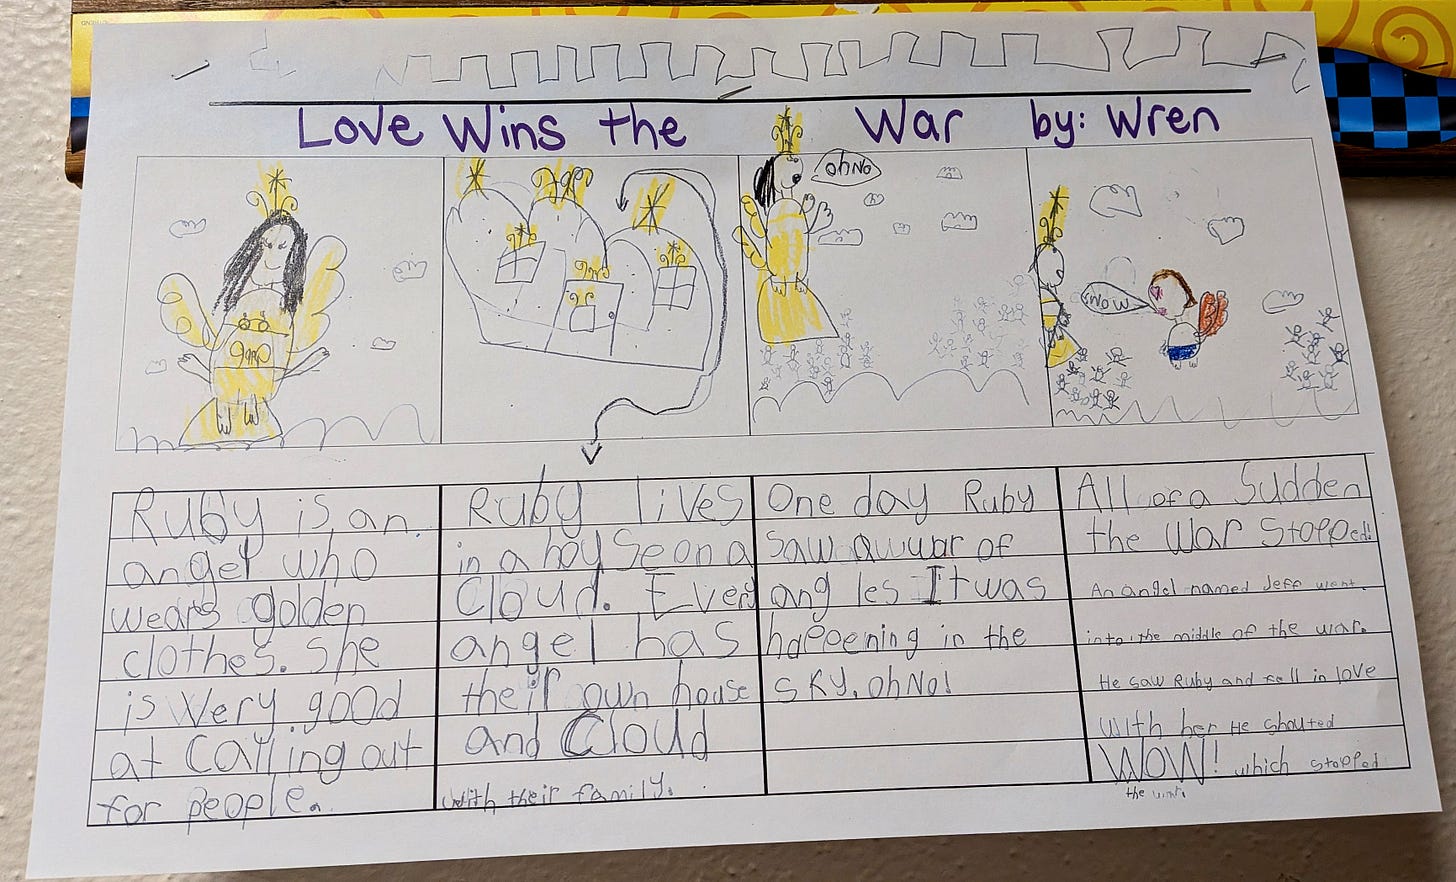 Love Wins the War by: Wren
oh No
WOW
Ruby is an
angel who
wears golden
clothes. She
is very good
at Calling out
for people.
Ruby lives
in a hoyse on a
Cloud. Every
angel has
their own house
and Cloud
with their family.
One day Ruby
saw a wuar of
ang les It was
happening in the
sky. oh No!
All of a Sudden
the war Stopped!
An angel named Jeff went
into the middle of the war.
He saw Ruby and fell in love
with her He shouted
WOW! which stopped
the war.